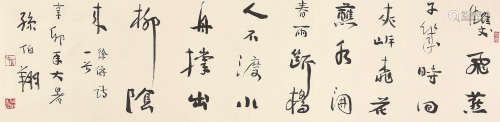 雙飛燕
子幾時回
夾岸桃花
蘸水開
春雨斷橋
人不渡小
舟撐出
柳陰
來
徐俯詩
一首
辛卯年大暑
孫伯翔